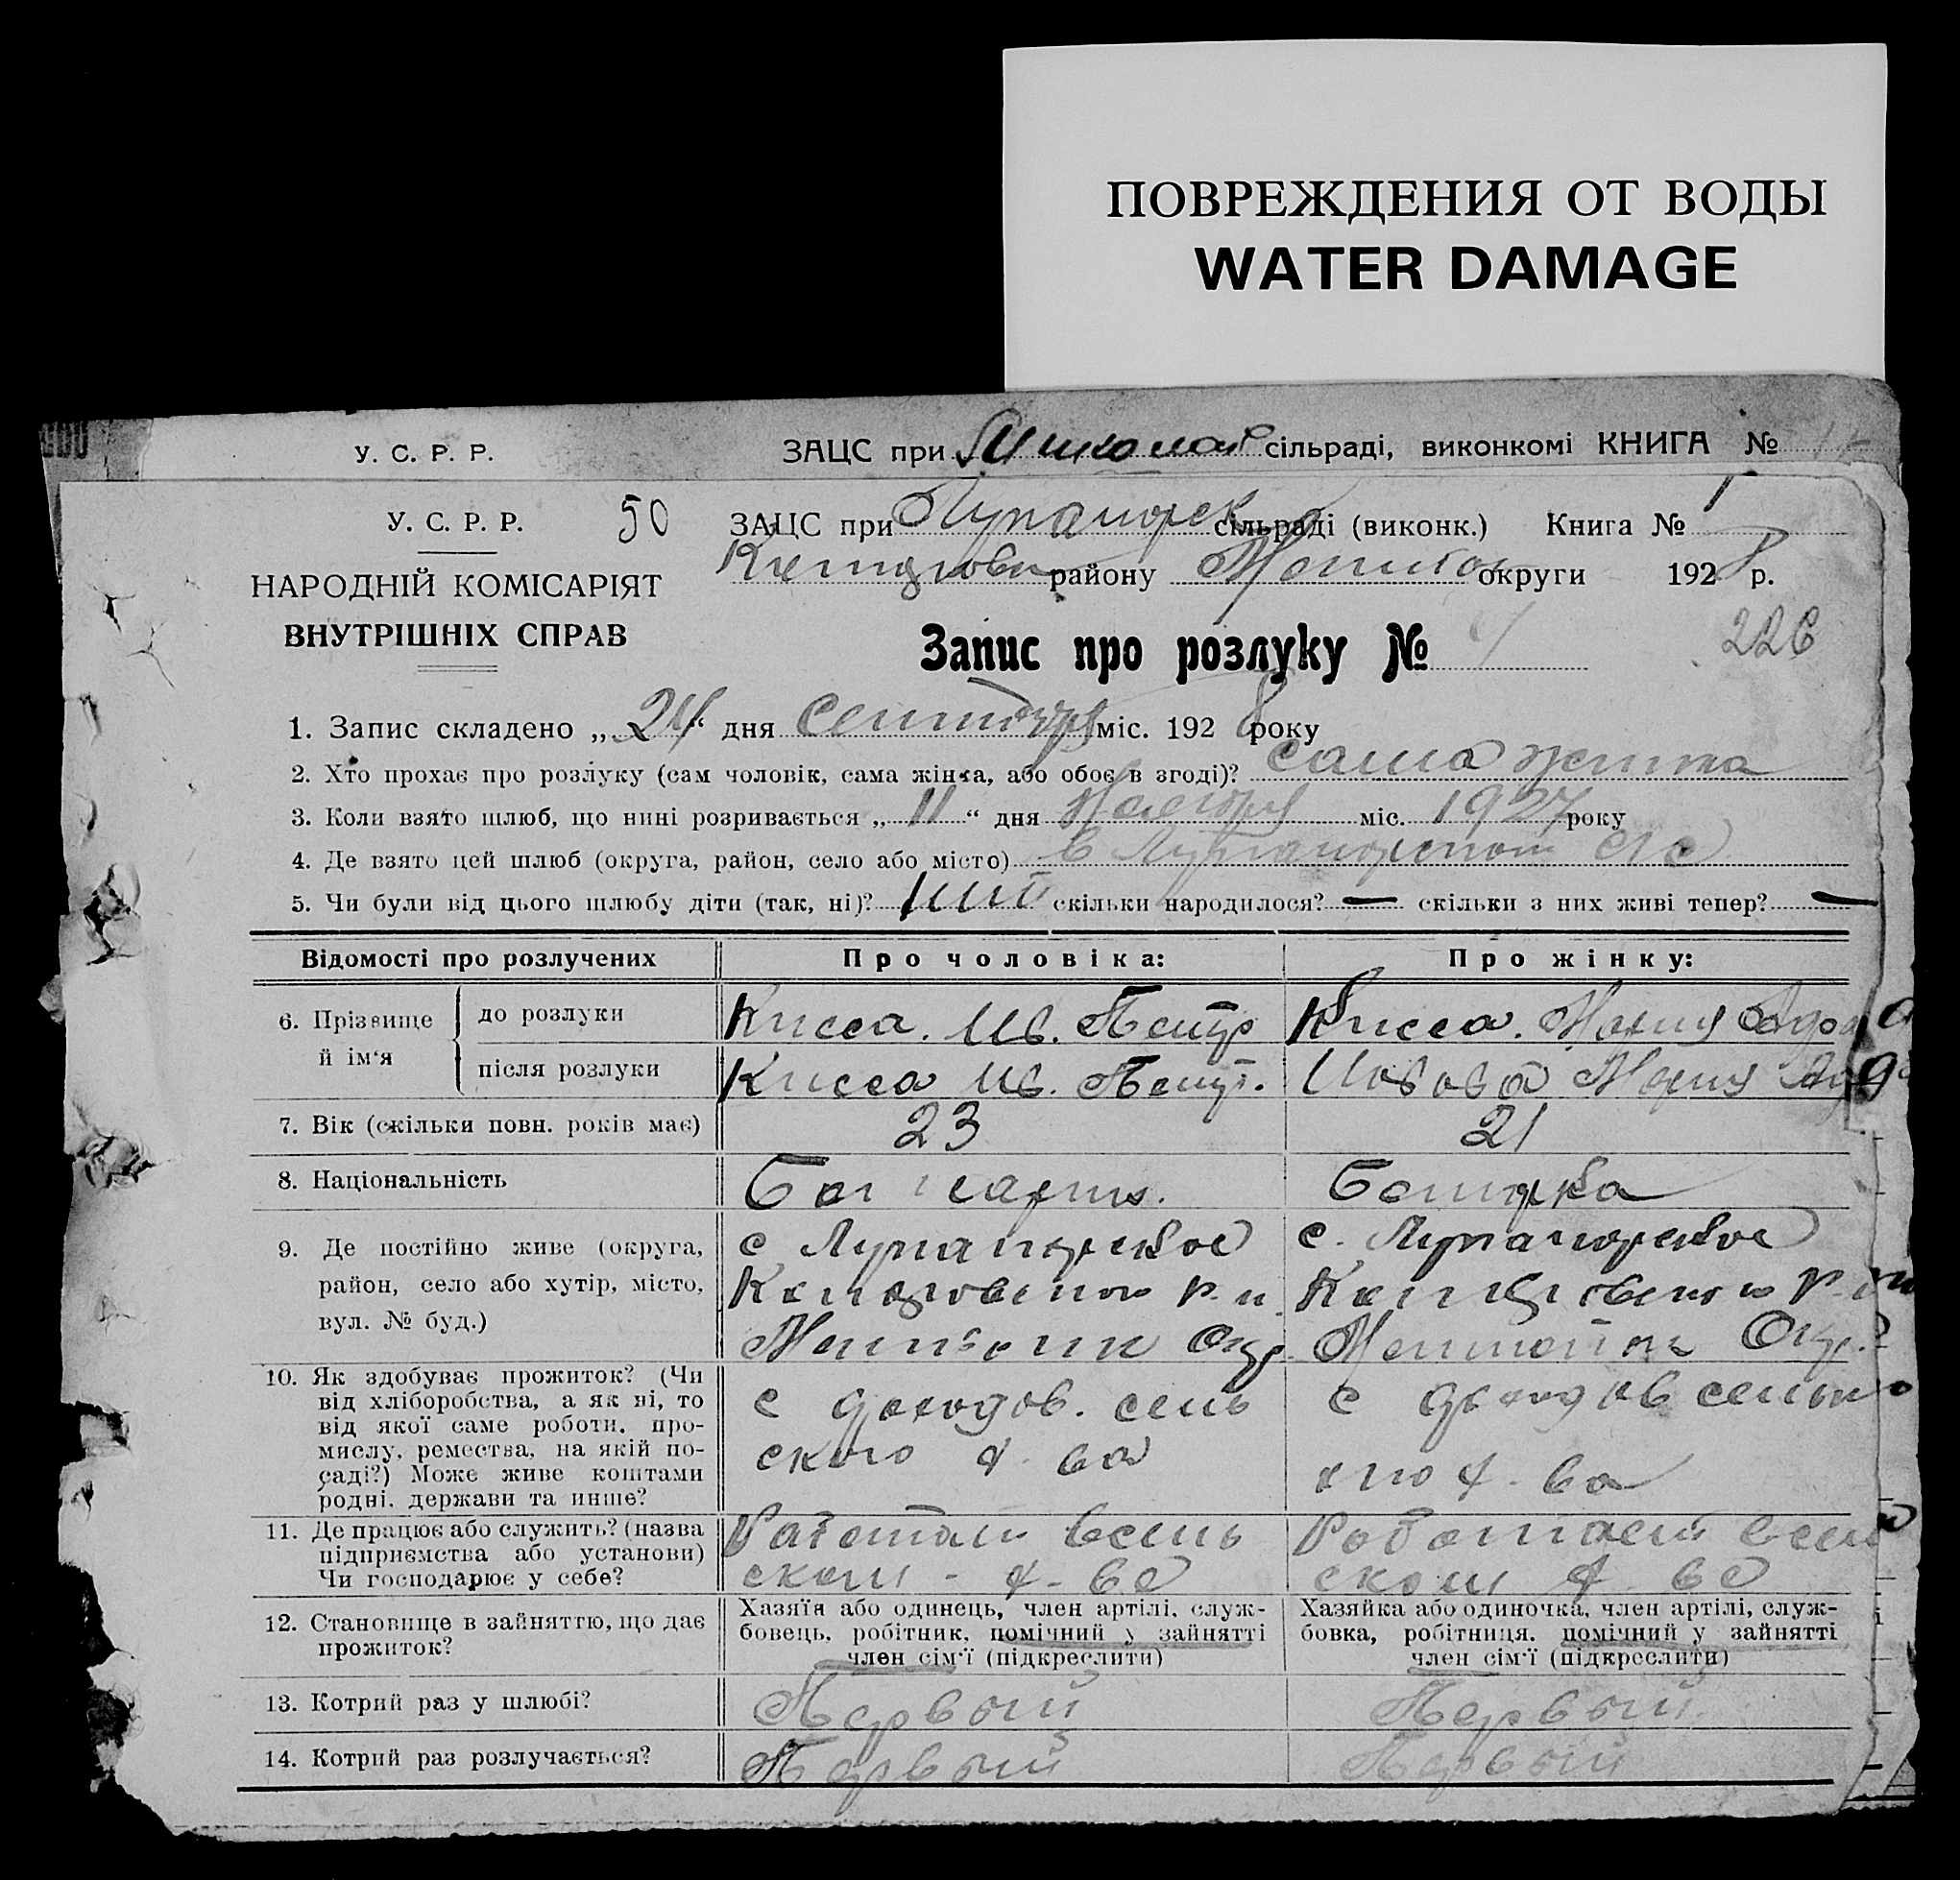 ПОВРЕЖДЕНИЯ ОТ ВОДЫ
WATER DAMAGE
У. С. Р. Р. ЗАЦС при сільраді, виконкомі КНИГА №
У. С. Р. Р. 50 ЗАЦС при сільраді (виконк.) Книга № 1
району округи 1928 р.
НАРОДНІЙ КОМІСАРІЯТ
ВНУТРІШНІХ СПРАВ
Запис про розлуку №
226
1. Запис складено „24“ дня сентября міс. 1928 року
2. Хто прохає про розлуку (сам чоловік, сама жінка, або обоє в згоді)? сама жинка
3. Коли взято шлюб, що нині розривається „11“ дня міс. 1927 року
4. Де взято цей шлюб (округа, район, село або місто) в
5. Чи були від цього шлюбу діти (так, ні)? скільки народилося? — скільки з них живі тепер? —
Відомості про розлучених Про чоловіка: Про жінку:
6. Прізвище й ім‘я
до розлуки Кисса. Ив. Петр Кисса. Мария
після розлуки Кисса Ив. Петр. Мария
7. Вік (скільки повн. років має) 23 21
8. Національність Болгарин. Болгарка
9. Де постійно живе (округа,
район, село або хутір, місто,
вул. № буд.)
с с.
р-н
Окр. Окр.
10. Як здобуває прожиток? (Чи
від хліборобства, а як ні, то
від якої саме роботи, про-
мислу, ремества, на якій по-
саді?) Може живе коштами
родні, держави та инше?
с доходов. сель с доходов сельс
ского х-ва кого х-ва
11. Де працює або служить? (назва
підприємства або установи)
Чи господарює у себе?
Работает в сель Работает в сель
ском - х-ве ском х-ве
12. Становище в зайняттю, що дає
прожиток?
Хазяїн або одинець, член артілі, служ-
бовець, робітник, помічний у зайнятті
член сім‘ї (підкреслити)
Хазяйка або одиночка, член артілі, служ-
бовка, робітниця, помічний у зайнятті
член сім‘ї (підкреслити)
13. Котрий раз у шлюбі? Первый Первый
14. Котрий раз розлучається? Первый Первый